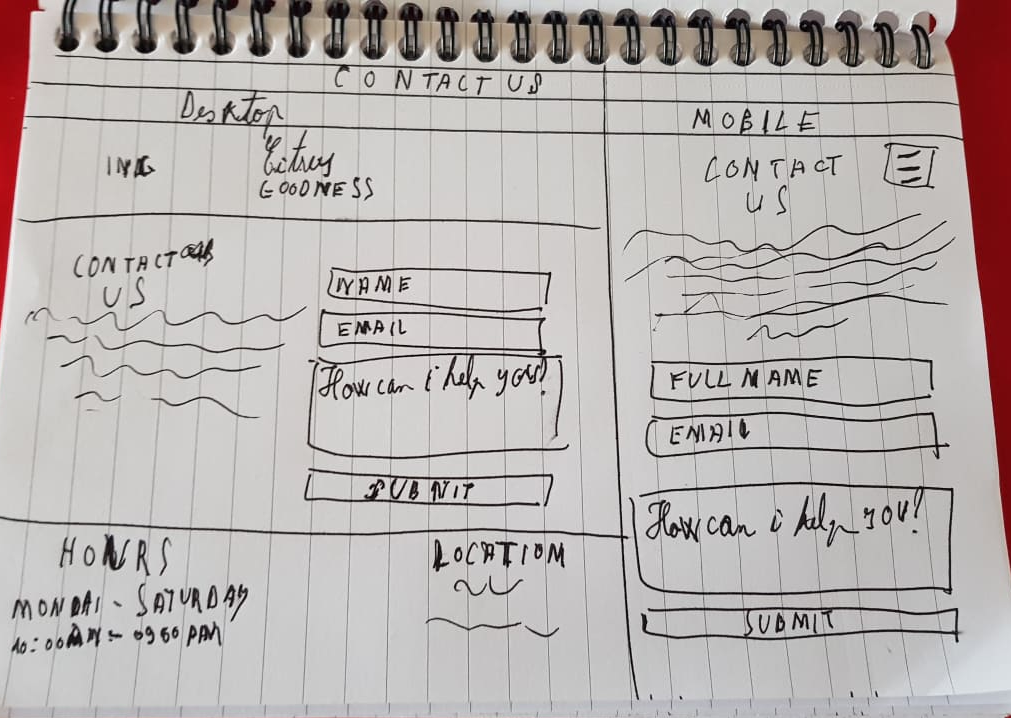 CONTACT US
Desktop
IMG
Citrus
GOODNESS
CONTACT
US
NAME
EMAIL
How can i help you?
SUBMIT
HOURS
MONDAI - SATURDAY
10:00AM -
LOCATION
MOBILE
CONTACT
US
FULL NAME
EMAIL
How can i help you?
SUBMIT